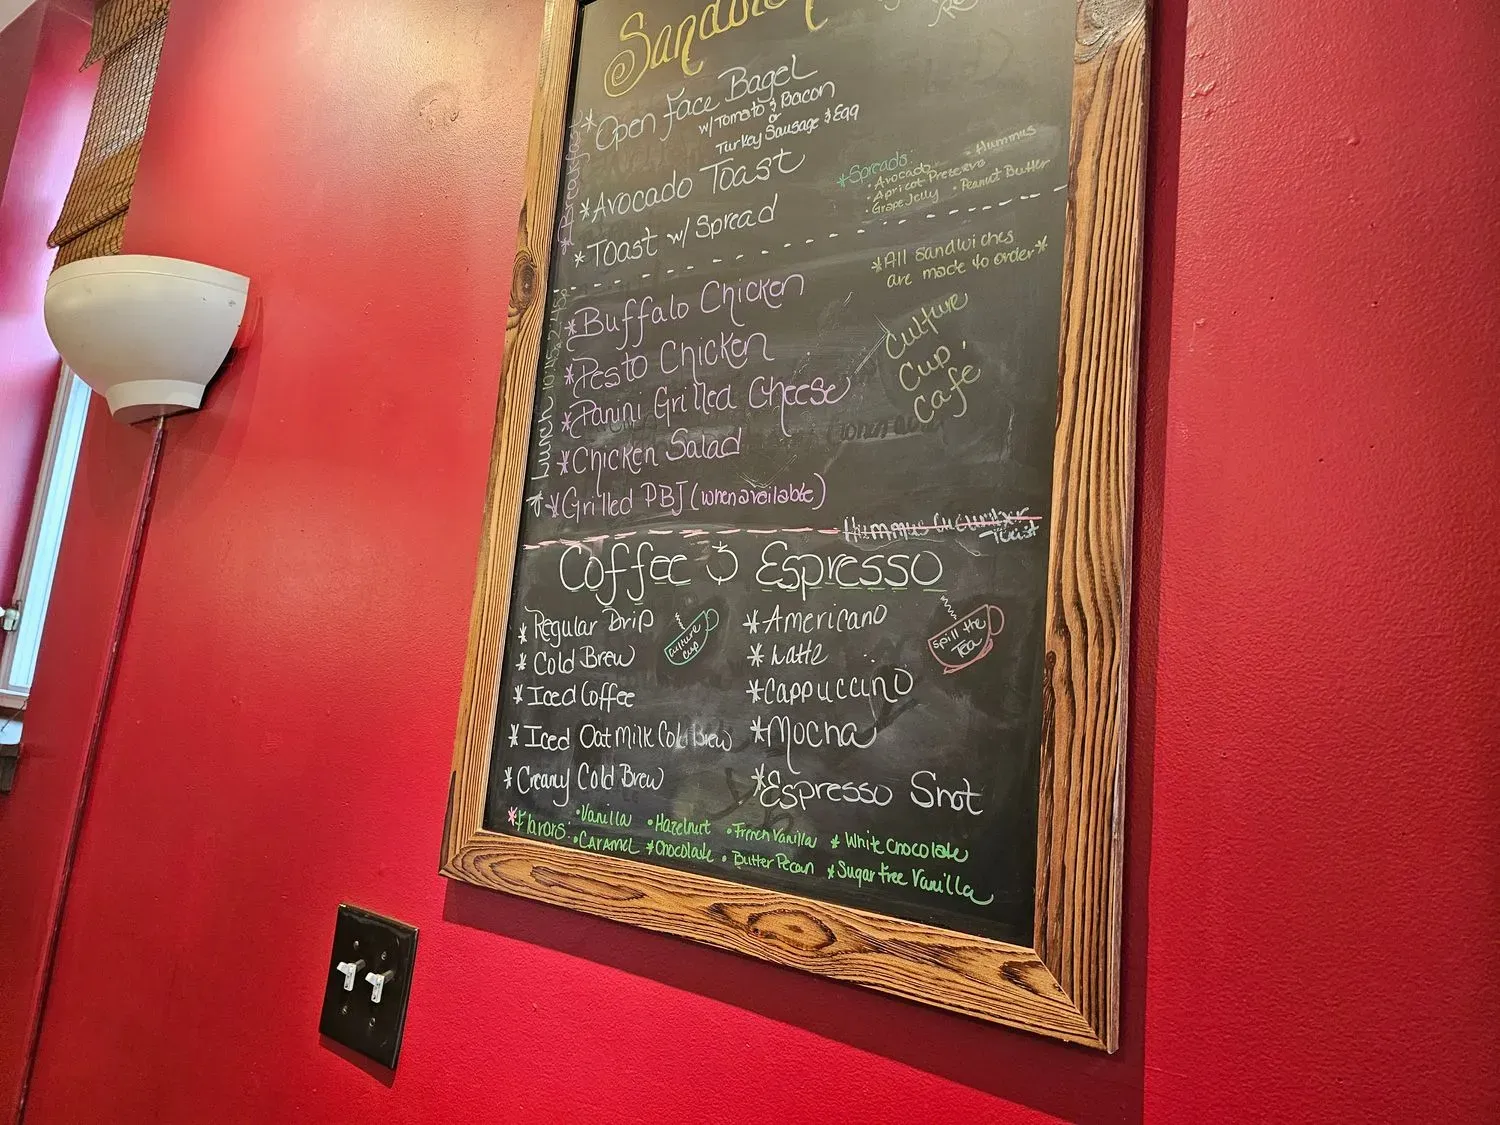 * Breakfast
* Open Face Bagel
w/ Tomato & Bacon
or
Turkey Sausage & Egg
* Avocado Toast
* Toast w/ Spread
* Spreads:
• Avocado
• Hummus
• Apricot Preserve
• Grape Jelly
• Peanut Butter
* Lunch
* Buffalo Chicken
* Pesto Chicken
* Panini Grilled Cheese
* Chicken Salad
* Grilled PBJ (when available)
*All Sandwiches
are made to order*
Culture
Cup
Cafe
Hummus Cucumber
Toast
Coffee & Espresso
* Regular Drip
* Cold Brew
* Iced Coffee
* Iced Oat Milk Cold Brew
* Creamy Cold Brew
Culture
Cup
* Americano
* Latte
* Cappuccino
* Mocha
* Espresso Shot
Spill the
Tea
* Flavors: • Vanilla • Hazelnut • French Vanilla * White Chocolate
• Caramel * Chocolate • Butter Pecan * Sugar Free Vanilla